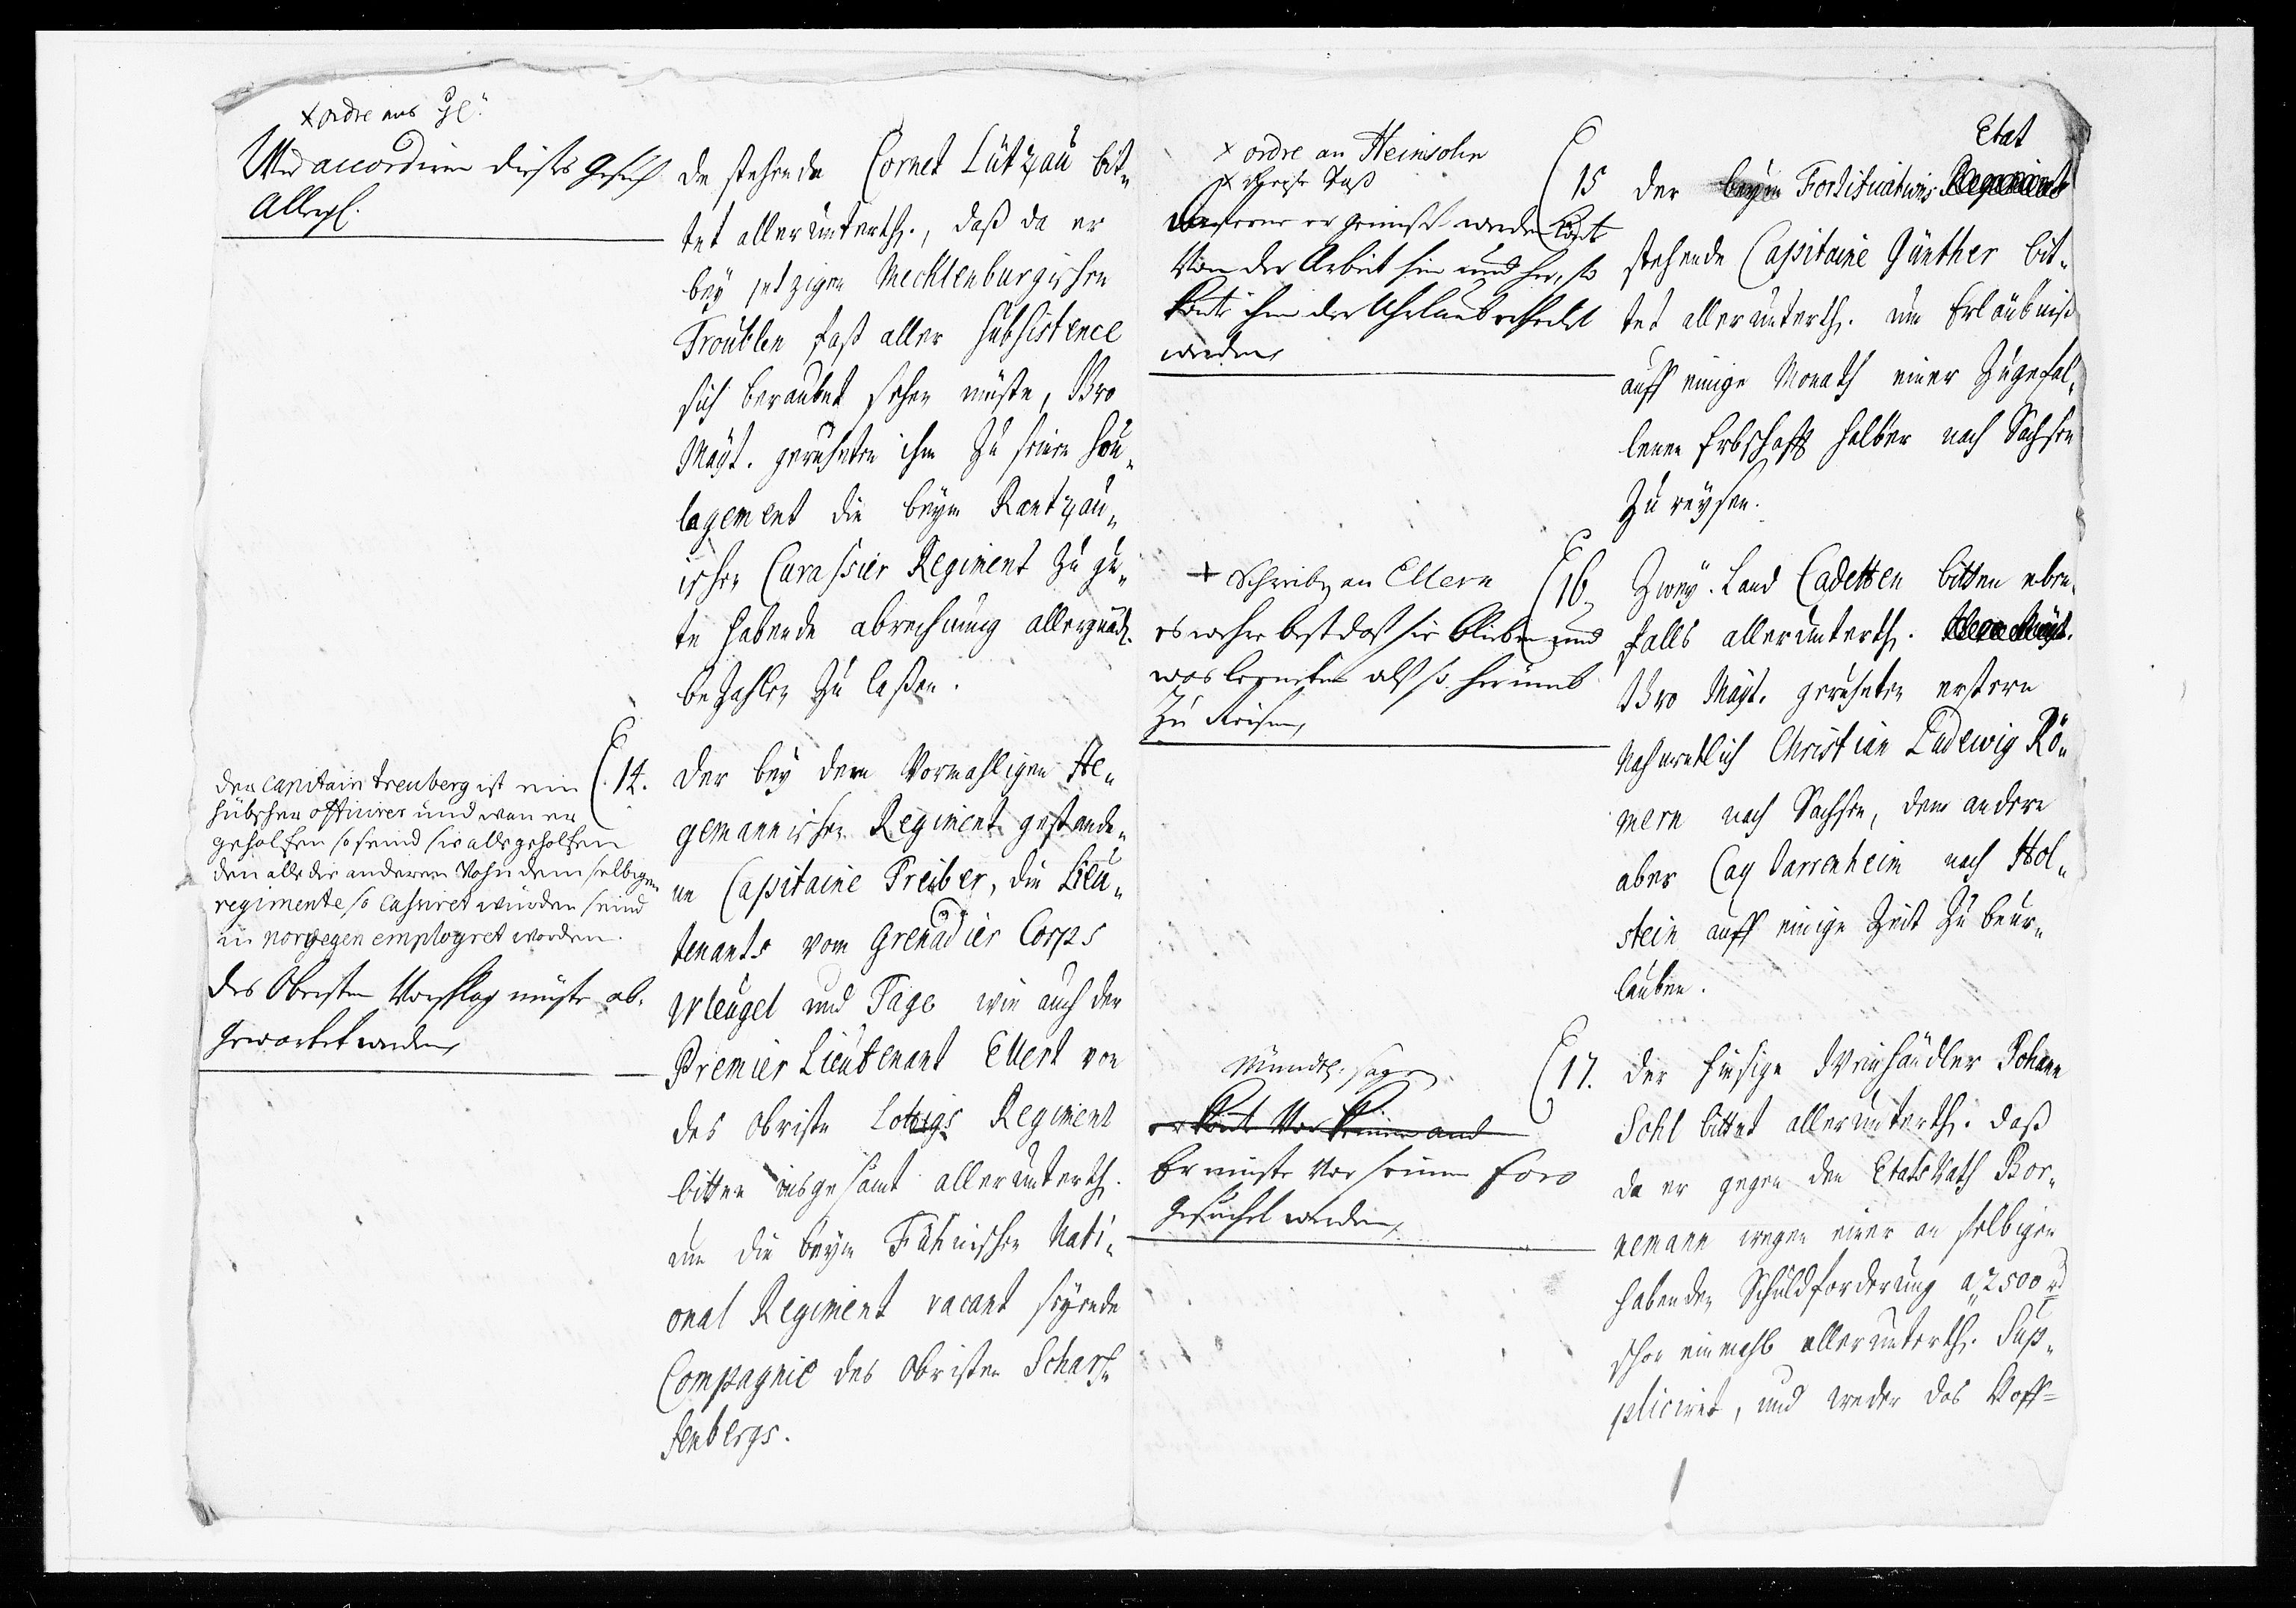 x ordre aus
Wir accordiren dieses Gesuch
Allergl.
de stehende Cornet Lützau bit„
tet allerunterth., daß da er
bey jetzigen Mecklenburgischen
Troublen fast aller Subsistence
sich beraubet sehen müste, Ihro
Mayt. geruheten ihm zu seinen Sou„
lagement die beym Rantzau„
ischen Curassier Regiment zu gu„
te habende abrechnung allergnäd.
bezahlen zu laßen.
den capitain treuberg ist ein
hübscher officirer und wan er
geholfen so seind sie alle geholfen
den alle die anderen Vohn dem selbigen
regimente so cassiret würden seind
in norwegen employret worden.
des Obersten Vorschlag müste ab„
gewartet werden,
14. der bey dem Vormahligen He„
gemannischen Regiment gestande„
ne Capitaine Preüber, die Lieu„
tenants vom Grenadier Corps
Wleugel und Tage wie auch der
Premier Lieutenant Ellert von
des Obriste Lotzigs Regiment
bitten insgesamt allerunterth.
um die beym Fühnischen Nati„
onal Regiment vacant seyende
Compagnie des Obristen Scharf„
fenbergs.
x ordre an Heinsohn
x Paß
wofern er gemist werden könt
Von der Arbeit hin und her, so
könte ihm der Uhrlaub
werden,
Etat
15 der beym Fortifications Regiment
stehende Capitaine Günther bit„
tet allerunterth. um Erlaubniß
auff einige Monath einer zugefal„
lenen Erbschafft halber nach Sachsen
zu reysen.
+ Schreiben an Ellern
es wehre best daß sie blieben und
was lerneten als so herumb
zu Reisen,
16. Zwey Land Cadetten bitten eben„
falls allerunterth.
Ihro Mayt. geruheten erstern
Nahmentlich Christian Ludewig Rö„
mern nach Sachsen, dem andern
aber Cay Darrenheim nach Hol„
stein auff einige Zeit zu beur„
lauben.
Mündtl. sagen.
er könte Vor
Er müste Vor seinem foro
gesuchet werden,
17. der hiesige Weinhändler Johann
Sohl bittet allerunterth. daß
da er gegen den Etatsrath Bor„
nemann wegen einer an selbigen
habenden Schuldforderung a 2500 rd
schon einmahl allerunterth. Sup„
pliciret, und weder das Hoff=